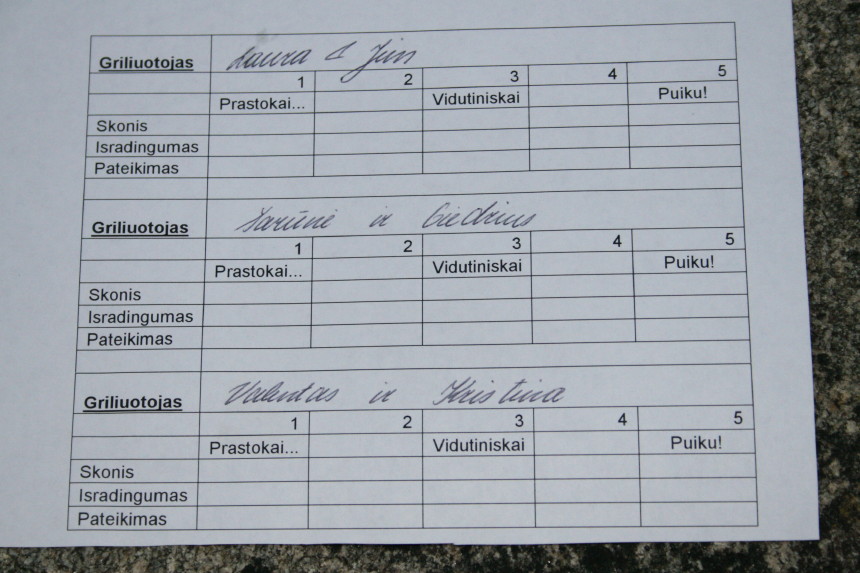 Griliuotojas Laura & Jim
1 2 3 4 5
Prastokai... Vidutiniskai Puiku!
Skonis
Isradingumas
Pateikimas
Griliuotojas Šarūnė ir Giedrius
1 2 3 4 5
Prastokai... Vidutiniskai Puiku!
Skonis
Isradingumas
Pateikimas
Griliuotojas Valentas ir Kristina
1 2 3 4 5
Prastokai... Vidutiniskai Puiku!
Skonis
Isradingumas
Pateikimas